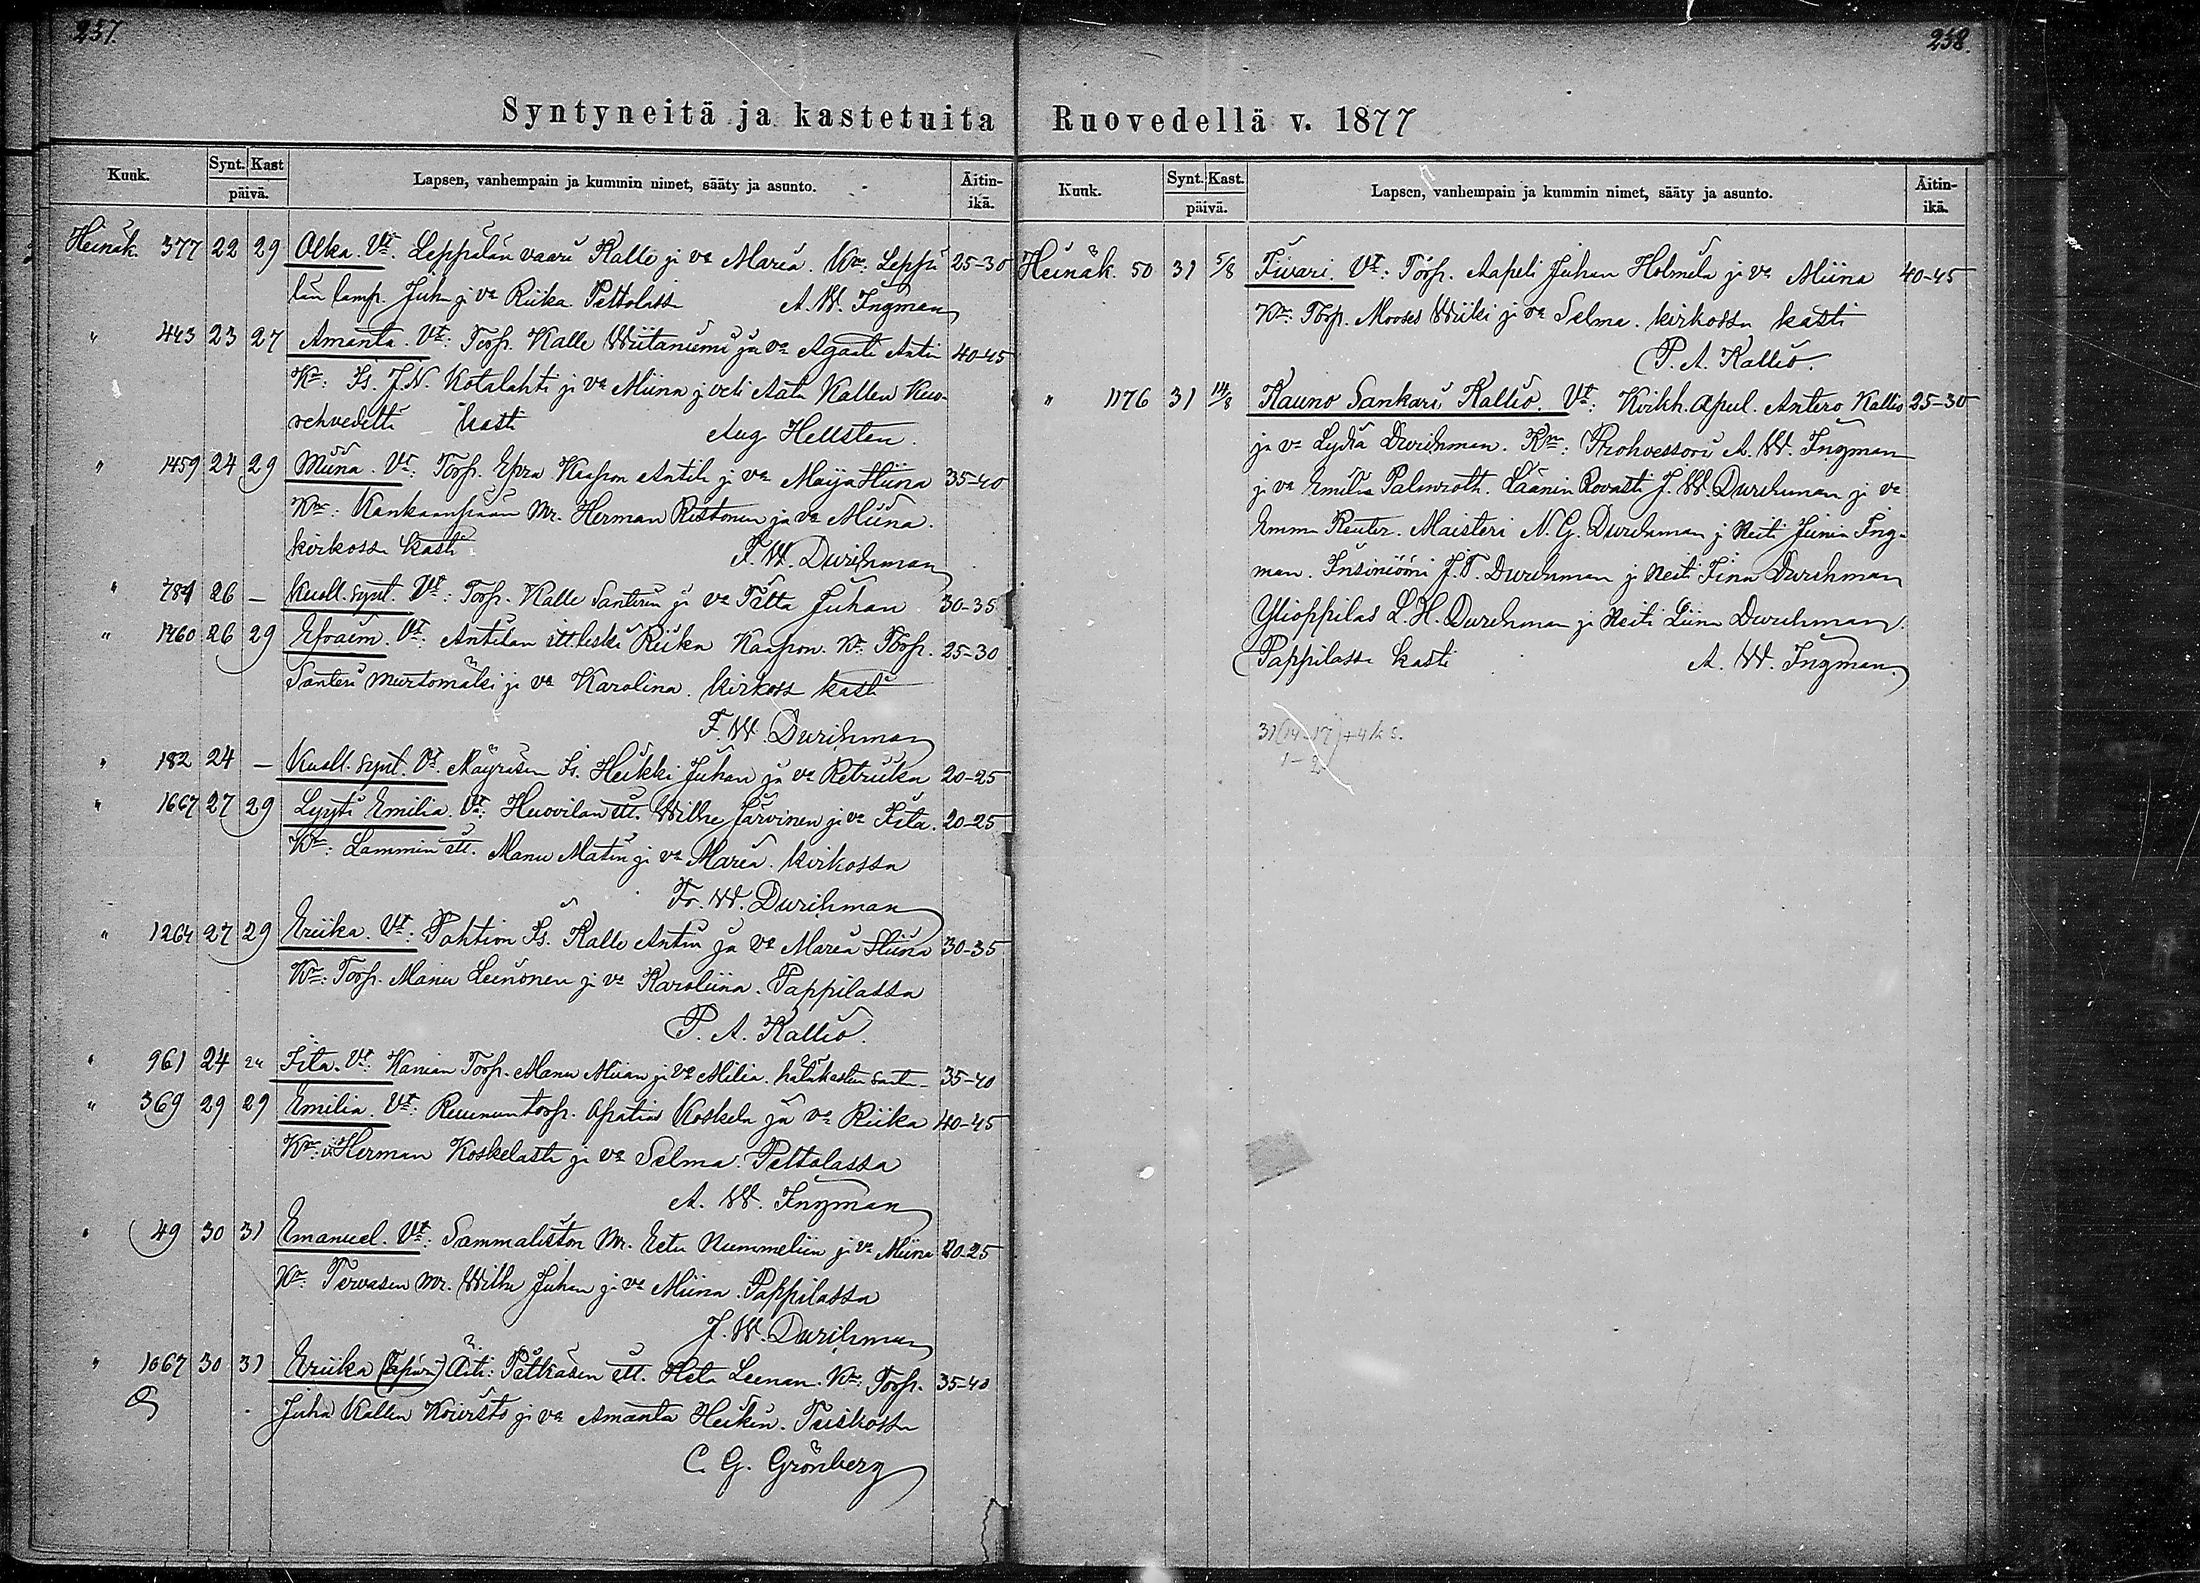 237.
Syntyneitä ja kastetuita
Kuuk. Synt. Kast päivä. Lapsen, vanhempain ja kummin nimet, sääty ja asunto. Äitin-ikä.
Heinäk. 377 22 29 Olka. Vt. Leppälän vaari Kalle ja va Maria. Kr: Leppä 25-30
län lamp. Juha ja va Riika Pettolassa A. W. Ingman
" 443 23 27 Amanta. Vt: Torp. Kalle Wiitaniemi ja va Agaata Antin 40-45
Kr: Is. J. N. Kotalahti ja va Miina ja veli Aatu Kallen Kuo-
rehvedeltä kasti Aug Hellsten.
" 1459 24 29 Miina. Vt: Torp. Epra Kaapon Antila ja va Maija Stiina 35-40
Kr: Kankaanpään Mr. Herman Ristonen ja va Miina.
kirkossa kasti F. W. Durchman
" 784 26 – Kuoll. synt. Vt: Torp. Kalle Santerin ja va Tilta Juhan 30-35
" 1460 26 29 Efraim. Vt: Antilan itt. leski Riika Kaapon. Kr. Torp. 25-30
Santeri Murtomäki ja va Karolina. kirkoss kasti
F. W. Durchman
" 182 24 – Kuoll. synt. Vt. Näyräsen Is. Heikki Juhan ja va Retriika 20-25
" 1667 27 29 Lyyti Emilia. Vt: Huovilan itt. Wilhe Järvinen ja va Iita. 20-25
Kr: Lammin itt. Manu Matin ja va Maria. kirkossa
Fr. W. Durchman
" 1264 27 29 Eriika. Vt: Pohtion Is. Kalle Antin ja va Maria Stiina 30-35
Kr: Torp. Manu Leinonen ja va Karoliina. Pappilassa
P. A. Kallio.
" 961 24 24 Iita. Vt: Torp. Manu ja va Milia. hätäkasteen 35-40
" 369 29 29 Emilia. Vt: torp. Koskela ja va Riika 40-45
Kr: Herman Koskelasta ja va Selma. Pettolassa
A. W. Ingman
" 49 30 31 Emanuel. Vt: Sammaliston Mr. Eetu Nummeliin ja va Miina 20-25
Kr: Tervasen Mr. Wilhe Juhan ja va Miina. Pappilassa
F. W. Durchman
" 1067 30 31 Eriika (Äpärä) Äiti: Pitkäsen itt. Heta Leenan. Kr: Torp. 35-40
Juha Kallen Koivisto ja va Amanta Heikin. Tuiskossa
C. G. Grönberg
258.
Ruovedellä v. 1877
Kuuk. Synt. Kast. päivä. Lapsen, vanhempain ja kummin nimet, sääty ja asunto. Äitin-ikä.
Heinäk. 50 31 5/8 Iivari. Vt: Torp. Aapeli Juhan Holmela ja va Miina 40-45
Kr: Torp. Mooses Wiiki ja va Selma. kirkossa kasti
P. A. Kallio.
" 1176 31 14/8 Kauno Sankari Kallio. Vt: Kirkh. Apul. Antero Kallio 25-30
ja va Lydia Durchman. Kr: Prohvessori A. W. Ingman
ja va Emilia Palmroth. Läänin Rovasti F. W. Durchman ja va
Emma Reuter. Maisteri N. G. Durchman ja Neiti Ing-
man. Insinööri J. T. Durchman ja Neiti Fina Durchman
Ylioppilas L. H. Durchman ja Neiti Liina Durchman.
Pappilassa kasti A. W. Ingman.
31 (14-17) + 4 k s.
1 – 2